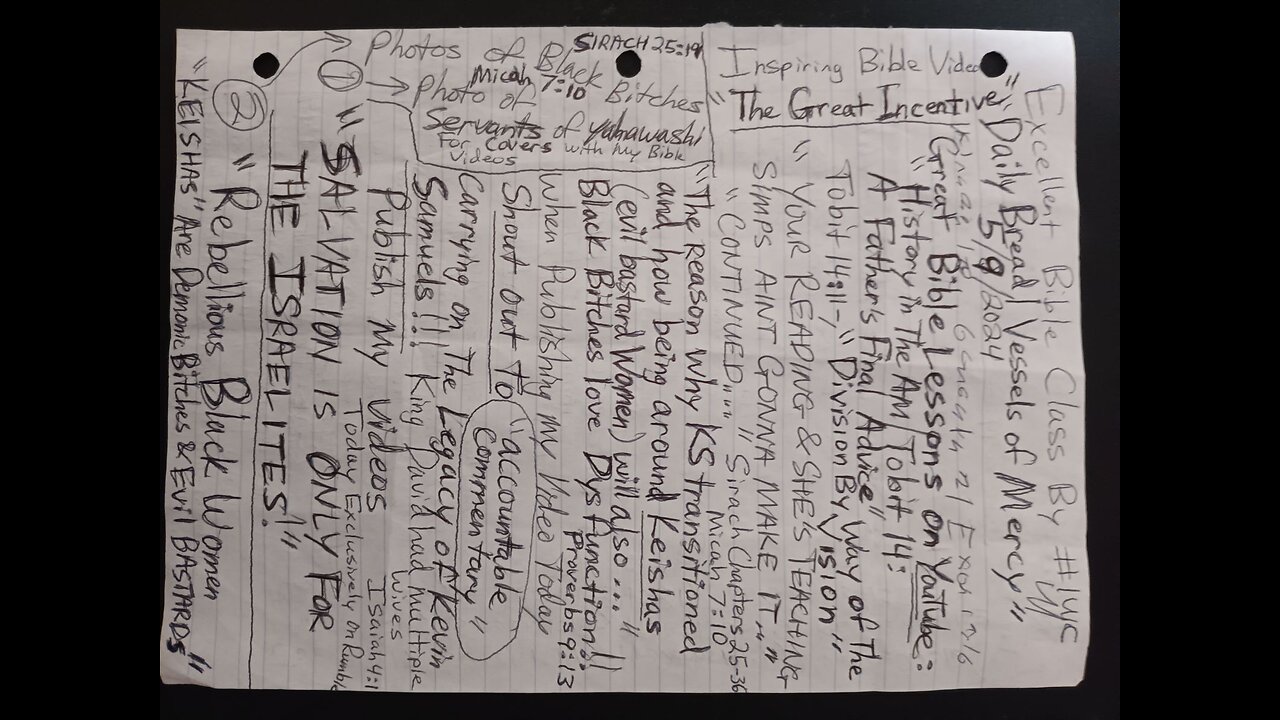 Excellent Bible Class By #IUIC
"Daily Bread / Vessels of Mercy"
5/9/2024
"Great Bible Lessons on Youtube:
"History in The AM Tobit 14:
A Father's Final Advice"
Tobit 14:11-, "Division By Way of The
Vision"
"YOUR READING & SHE'S TEACHING
SIMPS AINT GONNA MAKE IT"
"CONTINUED.... Sirach Chapters 25-36
Micah 7:10
"The Reason Why KS transitioned
and how being around Keishas
(evil bastard Women) will also..."
Black Bitches love Dysfunction!!
Proverbs 9:13
When Publishing my Video Today
Shout out To "accountable
commentary"
Carrying on The Legacy of Kevin
Samuels!!! King David had multiple
wives
Publish My Videos Isaiah 4:1
Today Exclusively on Rumble
① "SALVATION IS ONLY FOR
THE ISRAELITES!"
② "Rebellious Black Women
"KEISHAS" Are Demonic Bitches & Evil BAStARDS"
Inspiring Bible Video
"The Great Incentive"
SIRACH 25:19
Photos of Black Bitches
Micah 7:10
Photo of Servants of Yahawashi
For covers with My Bible
Videos